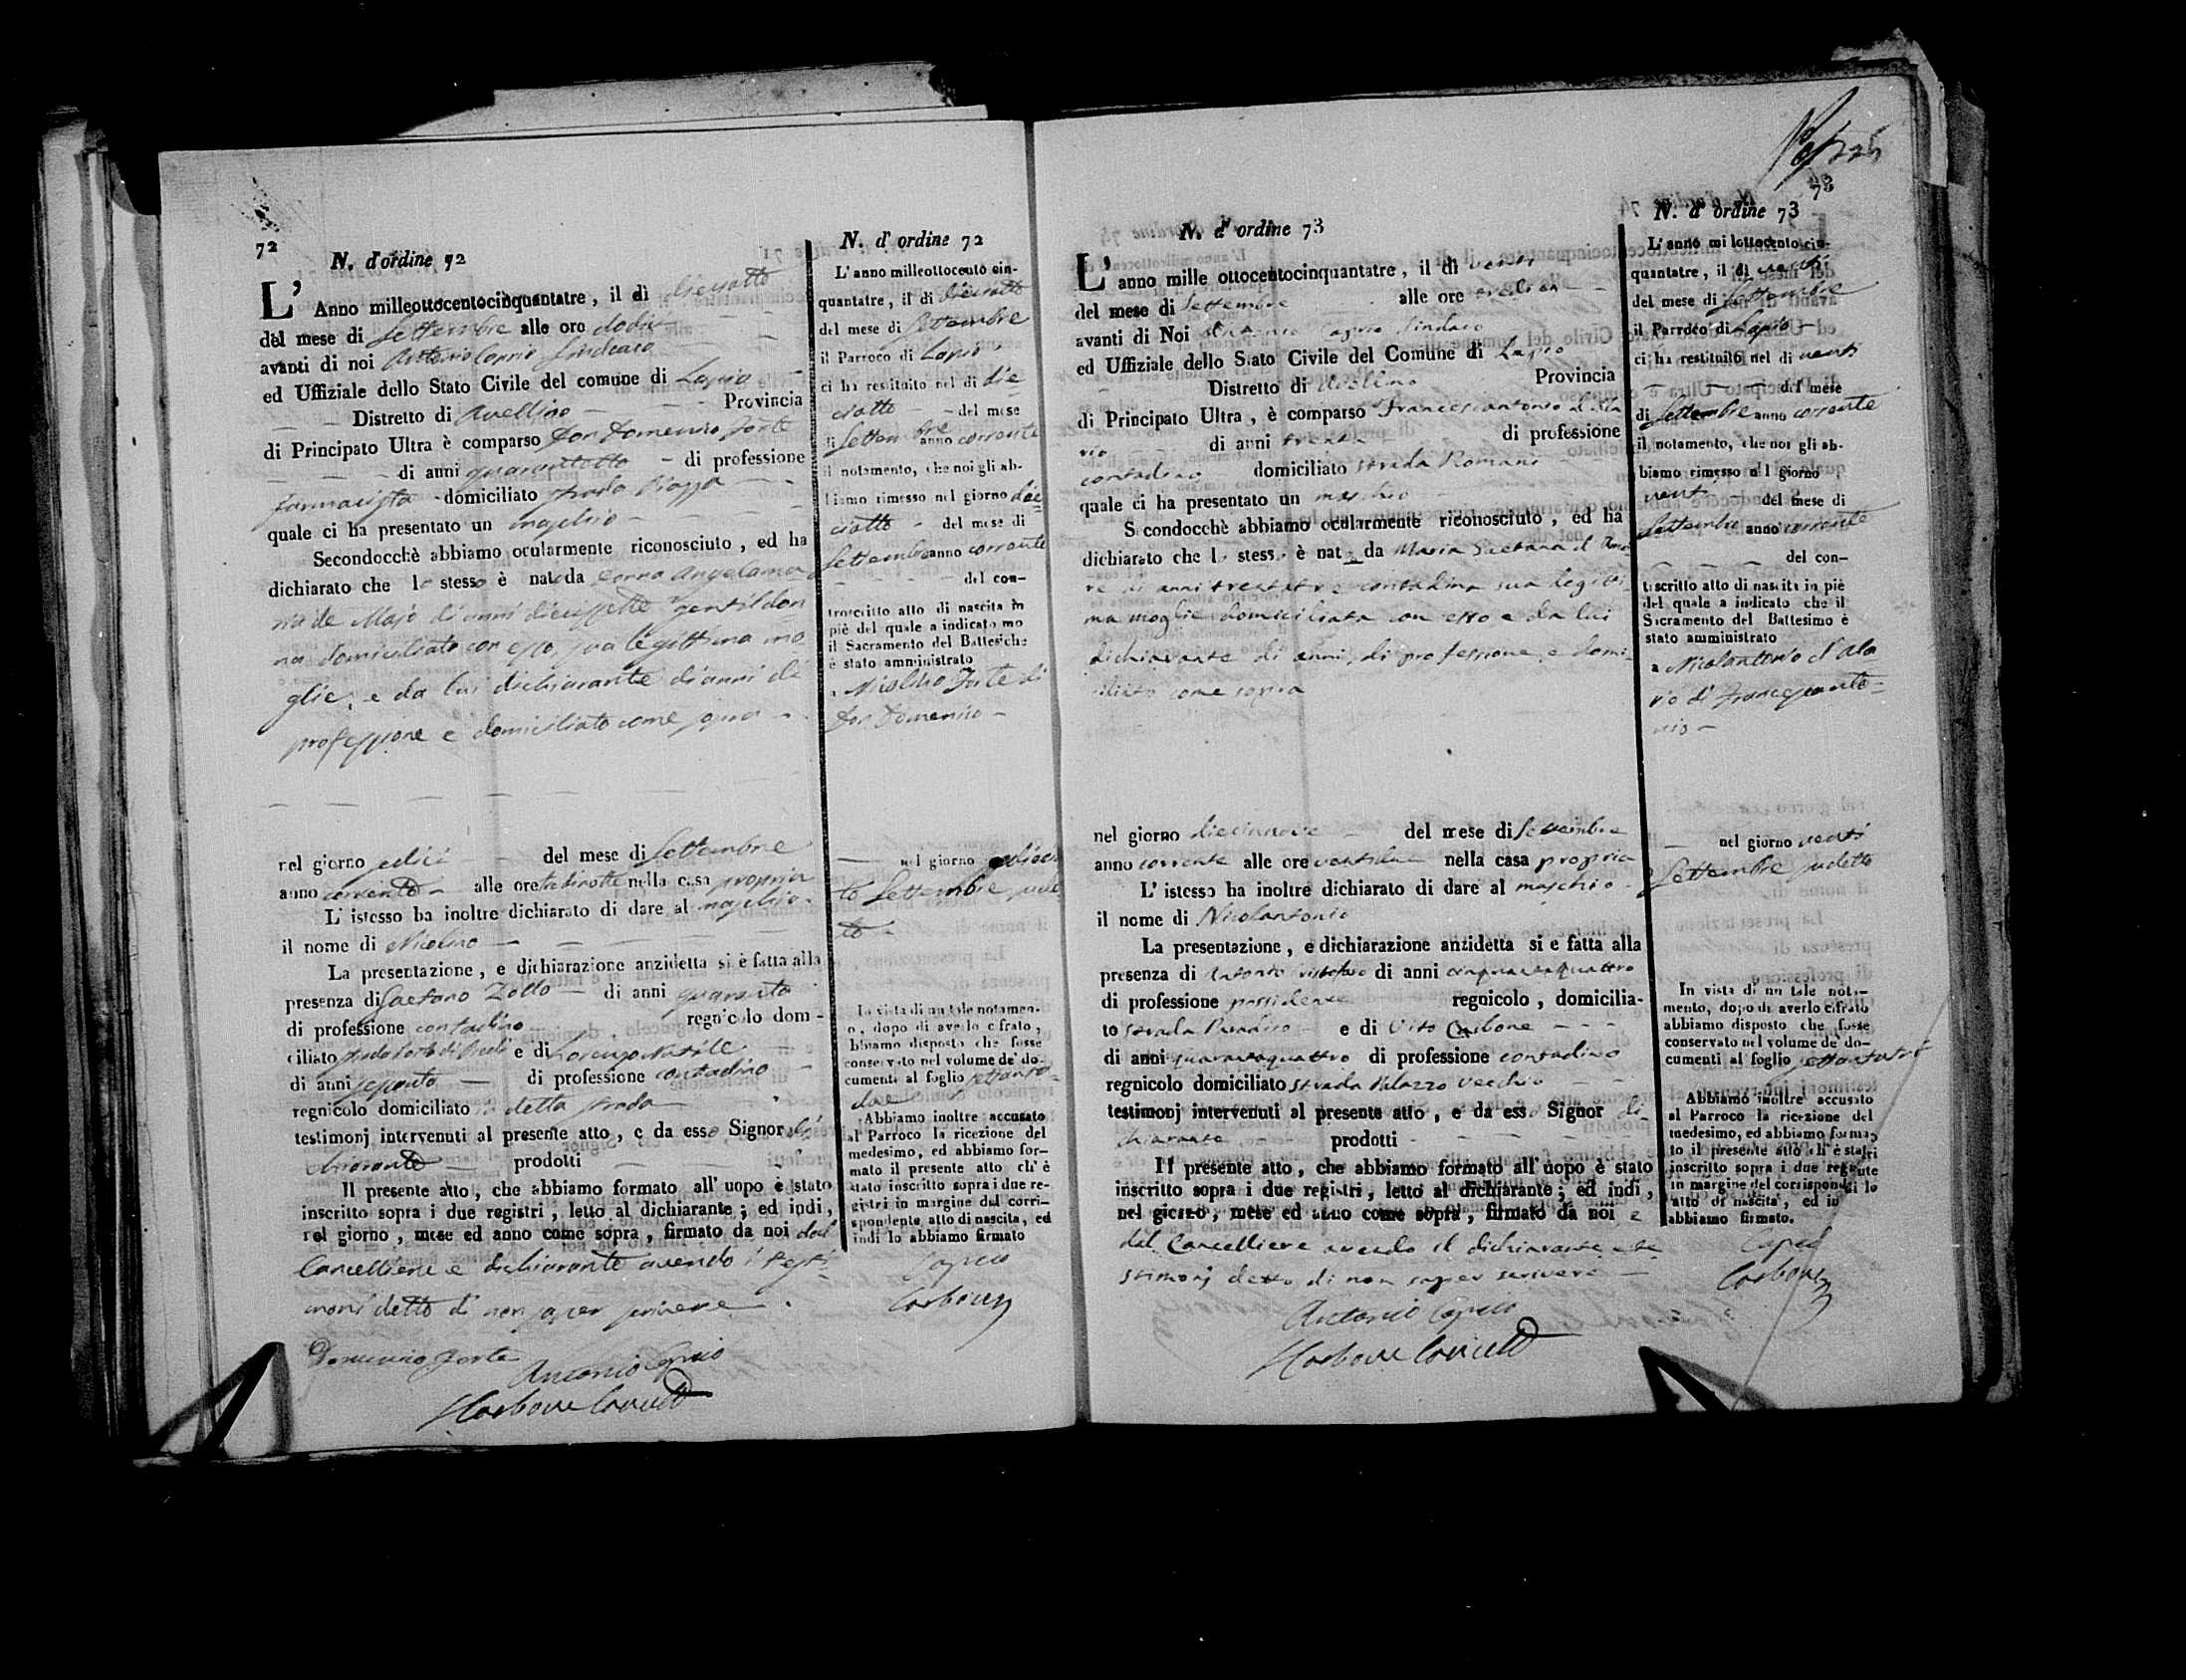 72
N. d'ordine 72
L' Anno milleottocentocinquantatre, il dì dieciotto
del mese di Settembre alle ore dodici
avanti di noi Antonio Caprio Sindaco
ed Uffiziale dello Stato Civile del comune di Lapio
Distretto di Avellino Provincia
di Principato Ultra è comparso Don Domenico Forte
di anni quarantotto di professione
farmacista domiciliato strada Piazza
quale ci ha presentato un maschio
Secondocchè abbiamo ocularmente riconosciuto, ed ha
dichiarato che lo stesso è nato da Angelama
ria de Majo di anni diecissette gentildon
na domiciliata con esso, sua legittima mo
glie, e da lui dichiarante di anni di
professione e domiciliato come sopra
nel giorno sedici del mese di Settembre
anno corrente alle ore nella casa propria
L' istesso ha inoltre dichiarato di dare al maschio
il nome di Nicolino
La presentazione, e dichiarazione anzidetta si è fatta alla
presenza di Gaetano Zollo di anni quaranta
di professione contadino regnicolo dom-
ciliato strada e di Lorenzo
di anni di professione contadino
regnicolo domiciliato detta strada
testimonj intervenuti al presente atto, e da esso Signor di
chiarante prodotti
Il presente atto, che abbiamo formato all' uopo è stato
inscritto sopra i due registri, letto al dichiarante; ed indi,
nel giorno, mese ed anno come sopra, firmato da noi dal
Cancelliere e dichiarante avendo i testi
monj detto di non saper scrivere
Domenico Forte
Antonio Caprio
Carbone Cancell
N. d' ordine 72
L' anno milleottocento cin-
quantatre, il di dieciotto
del mese di Settembre
il Parroco di Lapio
ci ha restituito nel di die
ciotto del mese
di Settembre anno corrente
il notamento, che noi gli ab-
biamo rimesso nel giorno die
ciotto del mese di
Settembre anno corrente
del con-
troscritto atto di nascita in
piè del quale a indicato mo
il Sacramento del Battesiche
è stato amministrato
a Nicolino Forte di
Don Domenico
nel giorno dieciot
to Settembre sudet
to
In vista di un tale notamen-
o, dopo di averlo cifrato,
bbiamo disposto che fosse
conservato nel volume de' do-
cumenti al foglio settanta
due
Abbiamo inoltre accusato
al Parroco la ricezione del
medesimo, ed abbiamo for-
mato il presente atto ch' è
stato inscritto sopra i due re-
gistri in margine del corri-
spondente atto di nascita, ed
indi lo abbiamo firmato
Caprio
Carbone
73
N. d' ordine 73
L' anno mille ottocentocinquantatre, il dì venti
del mese di Settembre alle ore
avanti di Noi Antonio Caprio Sindaco
ed Uffiziale dello Stato Civile del Comune di Lapio
Distretto di Avellino Provincia
di Principato Ultra, è comparso Francescantonio d'Ala
rio di anni trenta di professione
contadino domiciliato strada Romani
quale ci ha presentato un maschio
Secondocchè abbiamo ocularmente riconosciuto, ed ha
dichiarato che lo stesso è nato da Maria Gaetana d'Amo
re di anni trentatre contadina sua legitti
ma moglie domiciliata con esso e da lui
dichiarante di anni, di professione, e domi
ciliato come sopra
nel giorno diecinnove del mese di Settembre
anno corrente alle ore ventidue nella casa propria
L' istesso ha inoltre dichiarato di dare al maschio
il nome di Nicolantonio
La presentazione, e dichiarazione anzidetta si e fatta alla
presenza di Antonio di anni cinquantaquattro
di professione possidente regnicolo, domicilia-
to strada Paradiso e di Vito Carbone
di anni quarantaquattro di professione contadino
regnicolo domiciliato strada Palazzo Vecchio
testimonj intervenuti al presente atto, e da esso Signor di-
chiarante prodotti
Il presente atto, che abbiamo formato all' uopo è stato
inscritto sopra i due registri, letto al dichiarante; ed indi,
nel giorno, mese ed anno come sopra, firmato da noi e
dal Cancelliere avendo il dichiarante e te
stimonj detto di non saper scrivere
Antonio Caprio
Carbone Cancell
N. d' ordine 73
L' anno mi lottocento cin-
quantatre, il di venti
del mese di Settembre
il Parroco di Lapio
ci ha restituito nel di venti
del mese
di Settembre anno corrente
il notamento, che noi gli ab-
biamo rimesso nel giorno
venti del mese di
Settembre anno corrente
del con-
troscritto atto di nascita in piè
del quale a indicato che il
Sacramento del Battesimo è
stato amministrato
a Nicolantonio d'Ala
rio di Francescanto-
nio
nel giorno venti
Settembre sudetto
In vista di un tale nota-
mento, dopo di averlo cifrato
abbiamo disposto che fosse
conservato nel volume de' do-
cumenti al foglio settantatre
Abbiamo inoltre accusato
al Parroco la ricezione del
medesimo, ed abbiamo forma-
to il presente atto ch' è stato
inscritto sopra i due registri
in margine del corrispondente
atto di nascita, ed indi lo
abbiamo firmato.
Caprio
Carbone